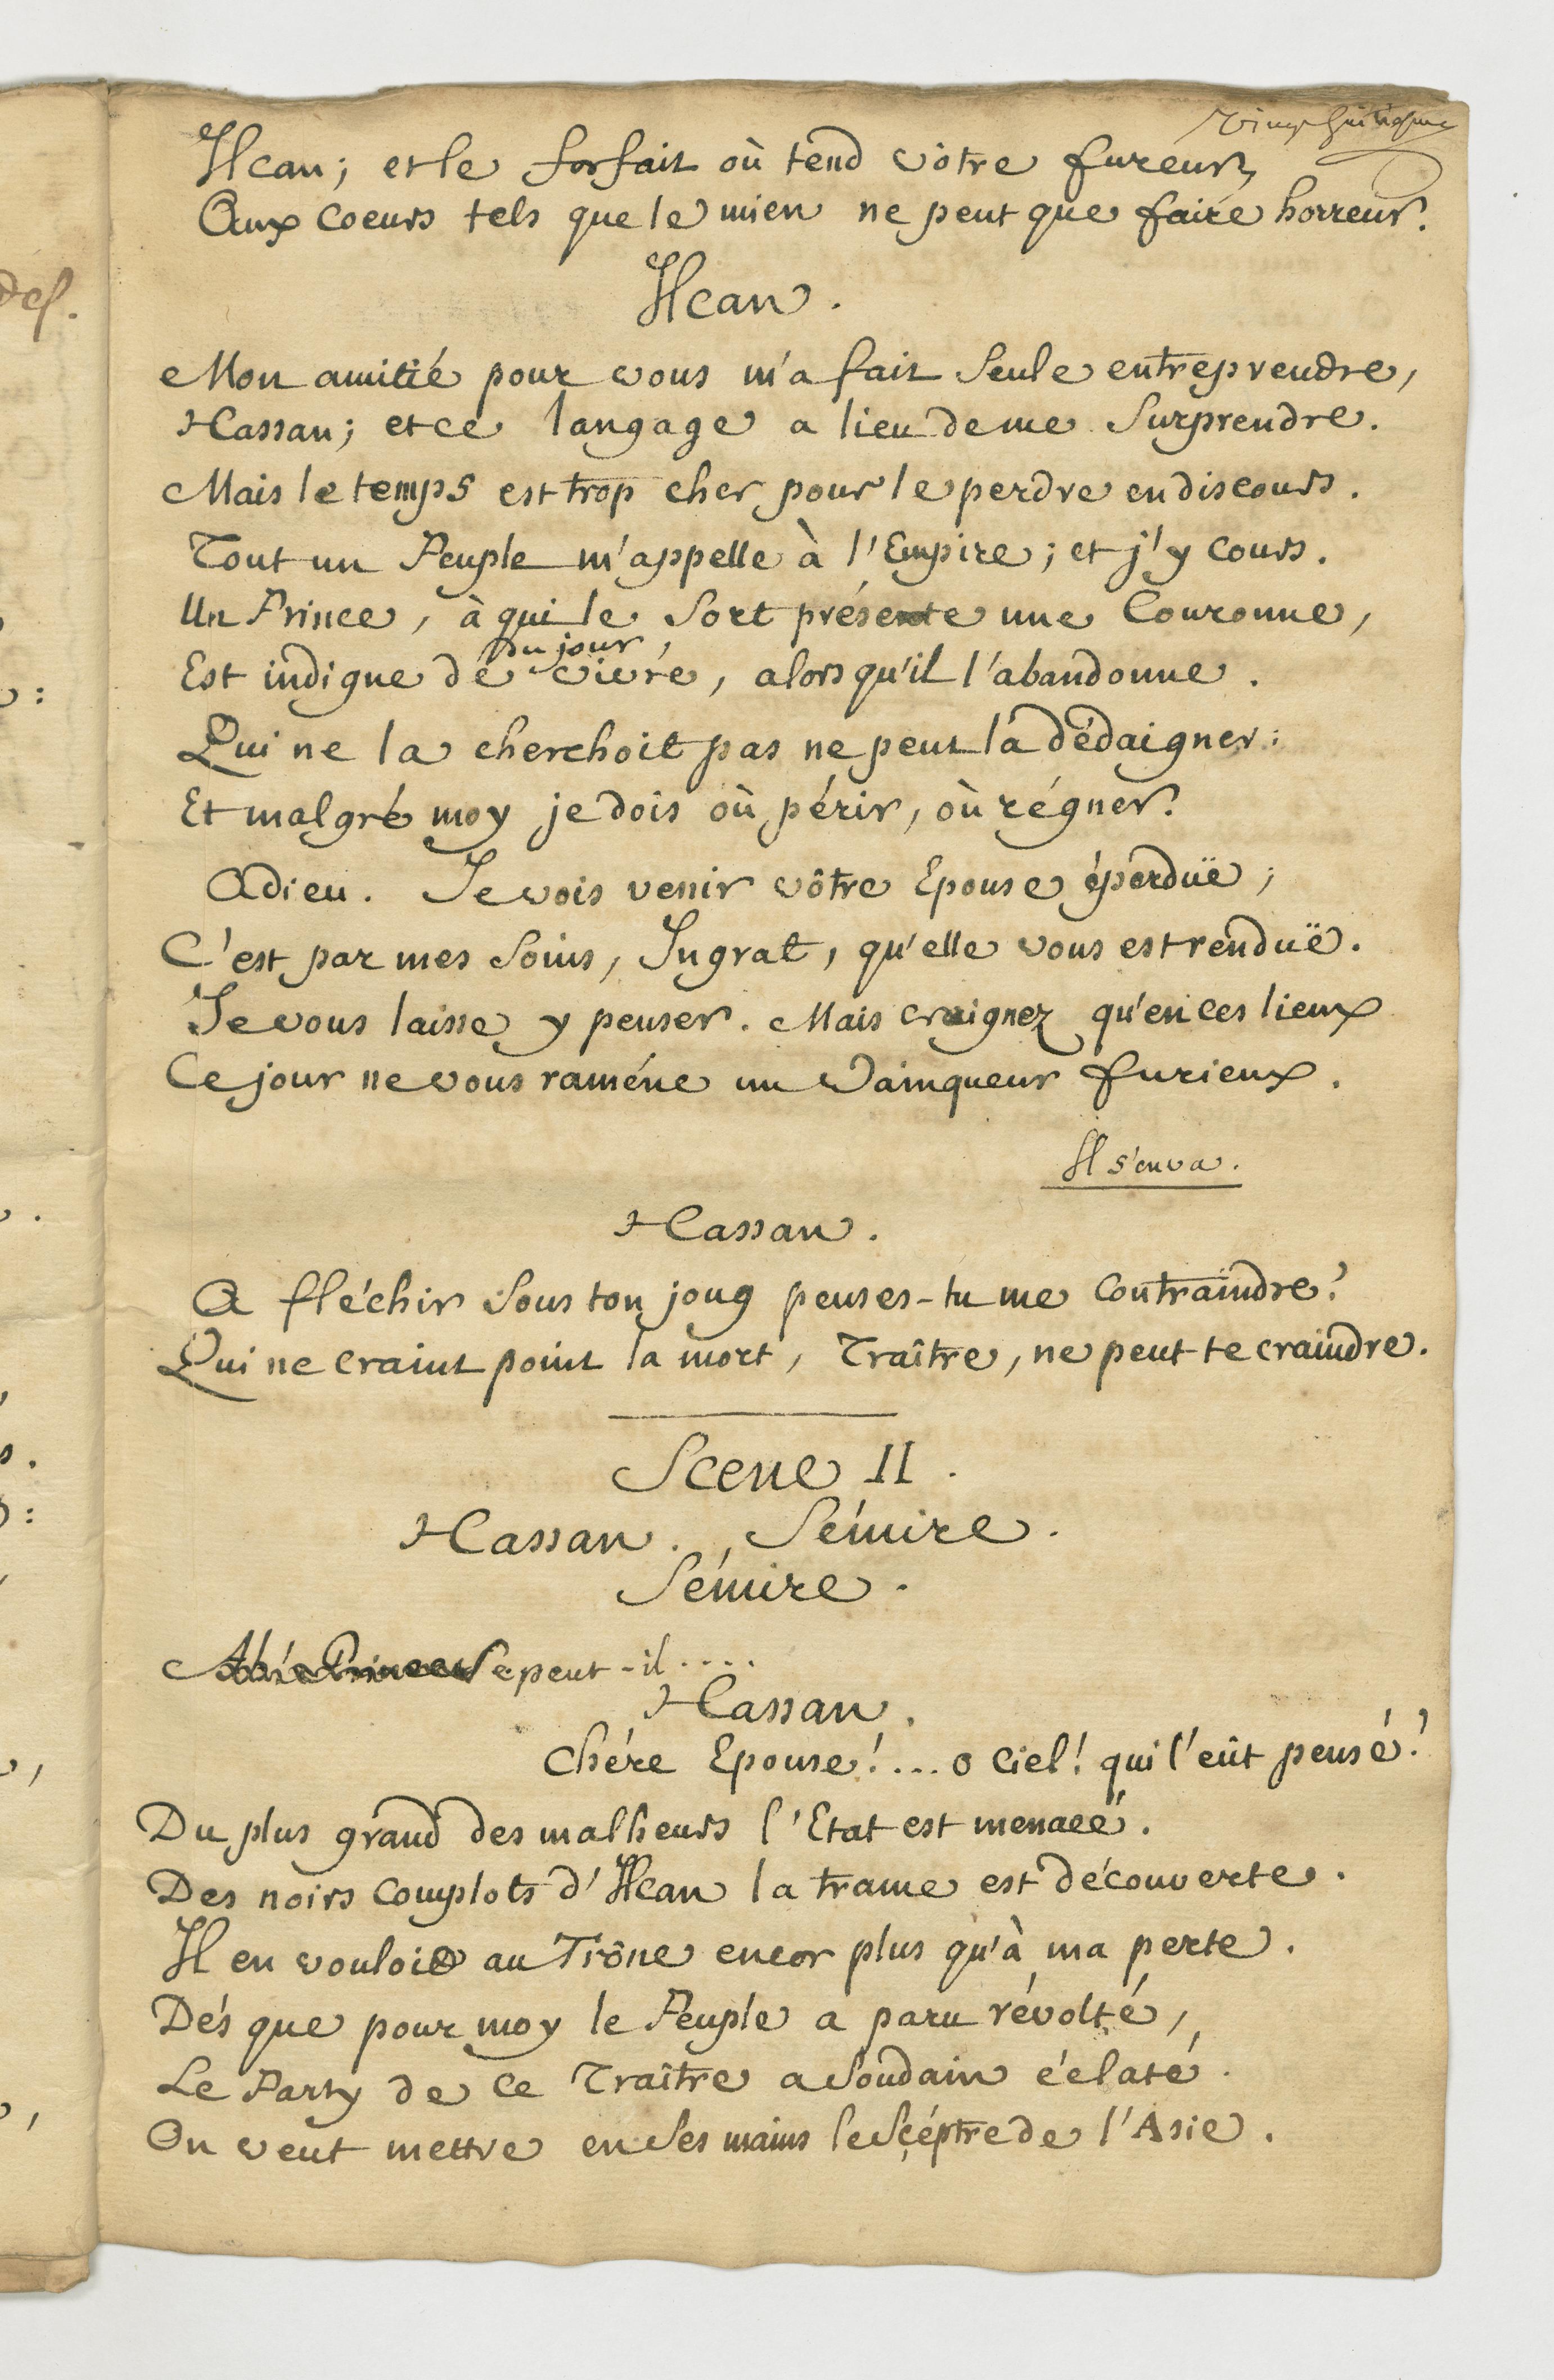 vingt huitiesme
Ilcan; et le forfait où tend vôtre fureur,
Aux coeurs tels que le mien ne peut que faire horreur.
Ilcan.
Mon amitié pour vous m'a fait seule entreprendre,
Hassan; et ce langage a lieu de me surprendre.
Mais le temps est trop cher pour le perdre en discours.
Tout un Peuple m'appelle à l'Empire; et j'y cours.
Un Prince, à qui le sort présente une Couronne,
du jour,
Est indigne de vivre, alors qu'il l'abandonne.
Qui ne la cherchoit pas ne peut la dédaigner:
Et malgré moy je dois où périr, où régner.
Adieu. Je vois venir vôtre Epouse éperduë;
C'est par mes soins, Ingrat, qu'elle vous est renduë.
Je vous laisse y penser. Mais craignez qu'en ces lieux
Ce jour ne vous raméne un Vainqueur furieux.
Il s'en va.
Hassan.
A fléchir sous ton joug penses-tu me contraindre?
Qui ne craint point la mort, Traître, ne peut te craindre.
Scene II.
Hassan., Sémire.
Sémire.
Se peut-il....
Hassan.
Chére Epouse!... o Ciel! qui l'eût pensé?
Du plus grand des malheurs l'Etat est menacé.
Des noirs complots d'Ilcan la trame est découverte.
Il en vouloit au Trône encor plus qu'à ma perte.
Dés que pour moy le Peuple a paru révolté,
Le Party de ce Traître a soudain éclaté.
On veut mettre en ses mains le Scéptre de l'Asie.